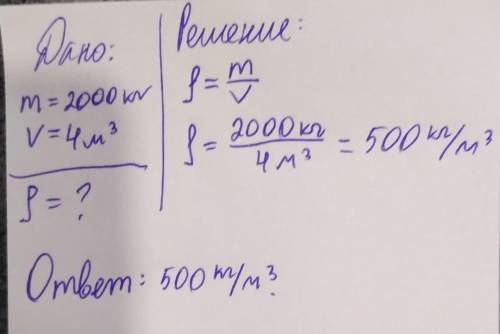 Дано:
m = 2000 кг
V = 4 м³
ρ = ?
Решение:
ρ = m/V
ρ = 2000 кг/4 м³ = 500 кг/м³
Ответ: 500 кг/м³.